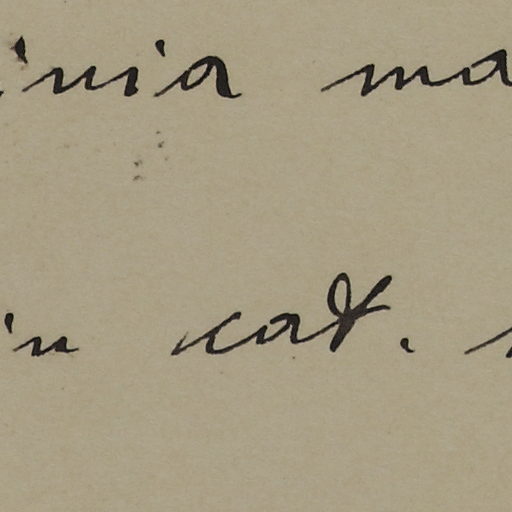 inia ma
in cat.